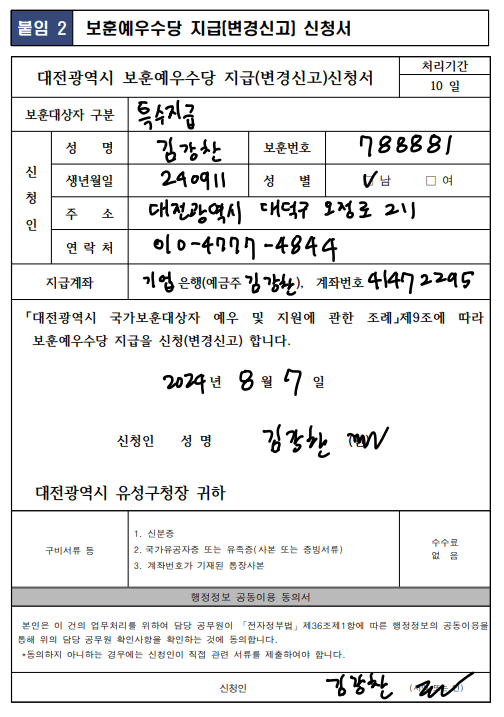 붙임 2 보훈예우수당 지급(변경신고) 신청서
대전광역시 보훈예우수당 지급(변경신고)신청서
처리기간
10 일
보훈대상자 구분 특수지급
신청인
성 명 김강찬 보훈번호 788881
생년월일 240911 성 별 ☑ 남 □ 여
주 소 대전광역시 대덕구 오정로 211
연 락 처 010-4777-4844
지급계좌 기업 은행(예금주 김강찬), 계좌번호 41472295
「대전광역시 국가보훈대상자 예우 및 지원에 관한 조례」제9조에 따라
보훈예우수당 지급을 신청(변경신고) 합니다.
2024 년 8 월 7 일
신청인 성 명 김강찬 (인)
대전광역시 유성구청장 귀하
구비서류 등
1. 신분증
2. 국가유공자증 또는 유족증(사본 또는 증빙서류)
3. 계좌번호가 기재된 통장사본
수수료
없 음
행정정보 공동이용 동의서
본인은 이 건의 업무처리를 위하여 담당 공무원이 「전자정부법」제36조제1항에 따른 행정정보의 공동이용을
통해 위의 담당 공무원 확인사항을 확인하는 것에 동의합니다.
*동의하지 아니하는 경우에는 신청인이 직접 관련 서류를 제출하여야 합니다.
신청인 김강찬 (서명 또는 인)